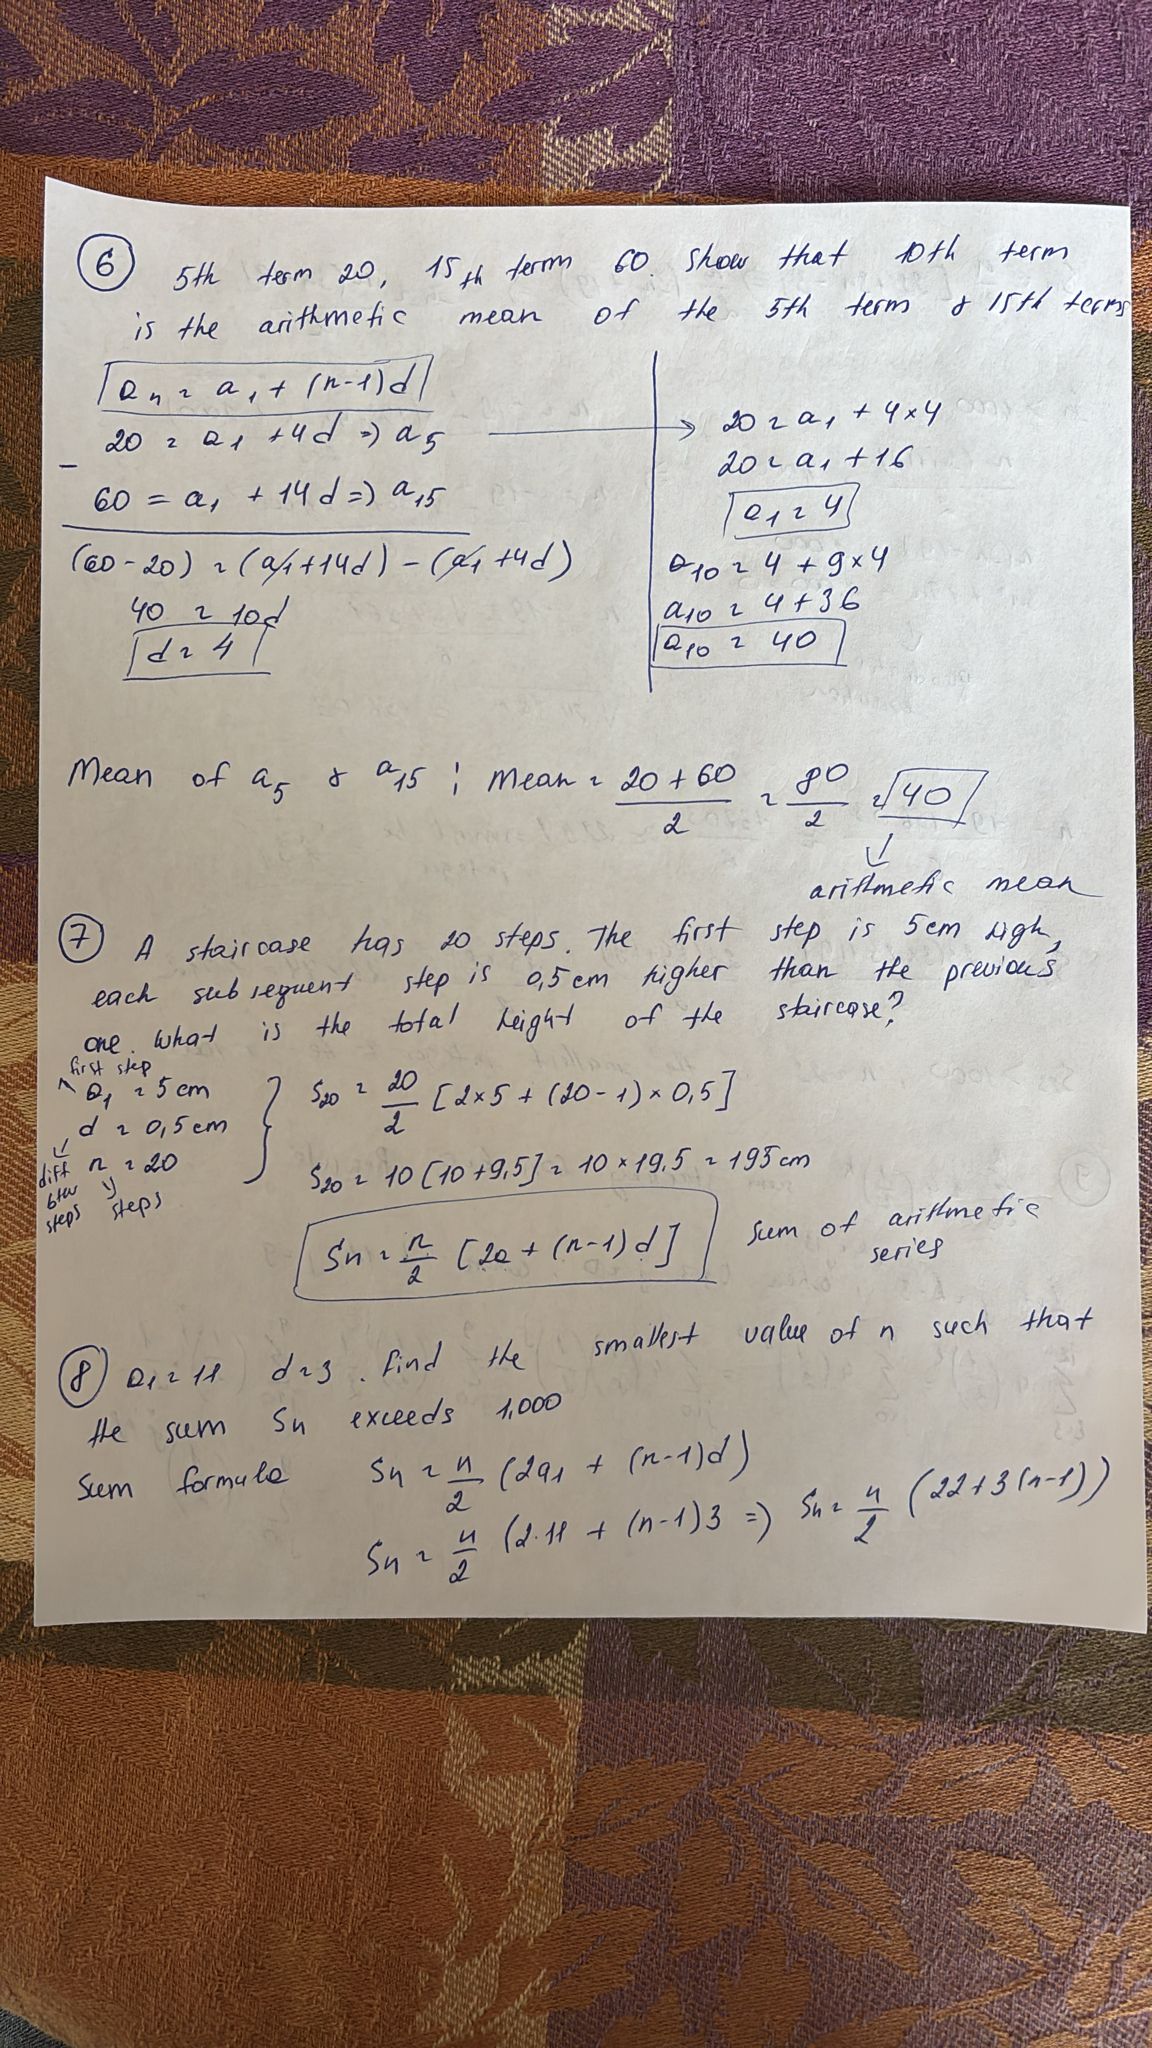 6 5th term 20, 15th term 60. Show that 10th term
is the arithmetic mean of the 5th term & 15th terms
an = a1 + (n-1)d
20 = a1 + 4d => a5
- 60 = a1 + 14d => a15
(60-20) = (a1+14d) - (a1+4d)
40 = 10d
d = 4
20 = a1 + 4×4
20 = a1 + 16
a1 = 4
a10 = 4 + 9×4
a10 = 4 + 36
a10 = 40
Mean of a5 & a15 ; Mean = (20+60)/2 = 80/2 = 40
arithmetic mean
7 A staircase has 20 steps. The first step is 5cm high,
each subsequent step is 0,5cm higher than the previous
one. What is the total height of the staircase?
first step
a1 = 5 cm
d = 0,5cm
n = 20
diff btw steps
steps
S20 = 20/2 [2×5 + (20-1) × 0,5]
S20 = 10[10+9,5] = 10×19,5 = 195cm
Sn = n/2 [2a + (n-1)d]
sum of arithmetic
series
8 a1 = 11 d = 3. find the smallest value of n such that
the sum Sn exceeds 1,000
Sum formula Sn = n/2 (2a1 + (n-1)d)
Sn = n/2 (2·11 + (n-1)3 => Sn = n/2 (22+3(n-1))